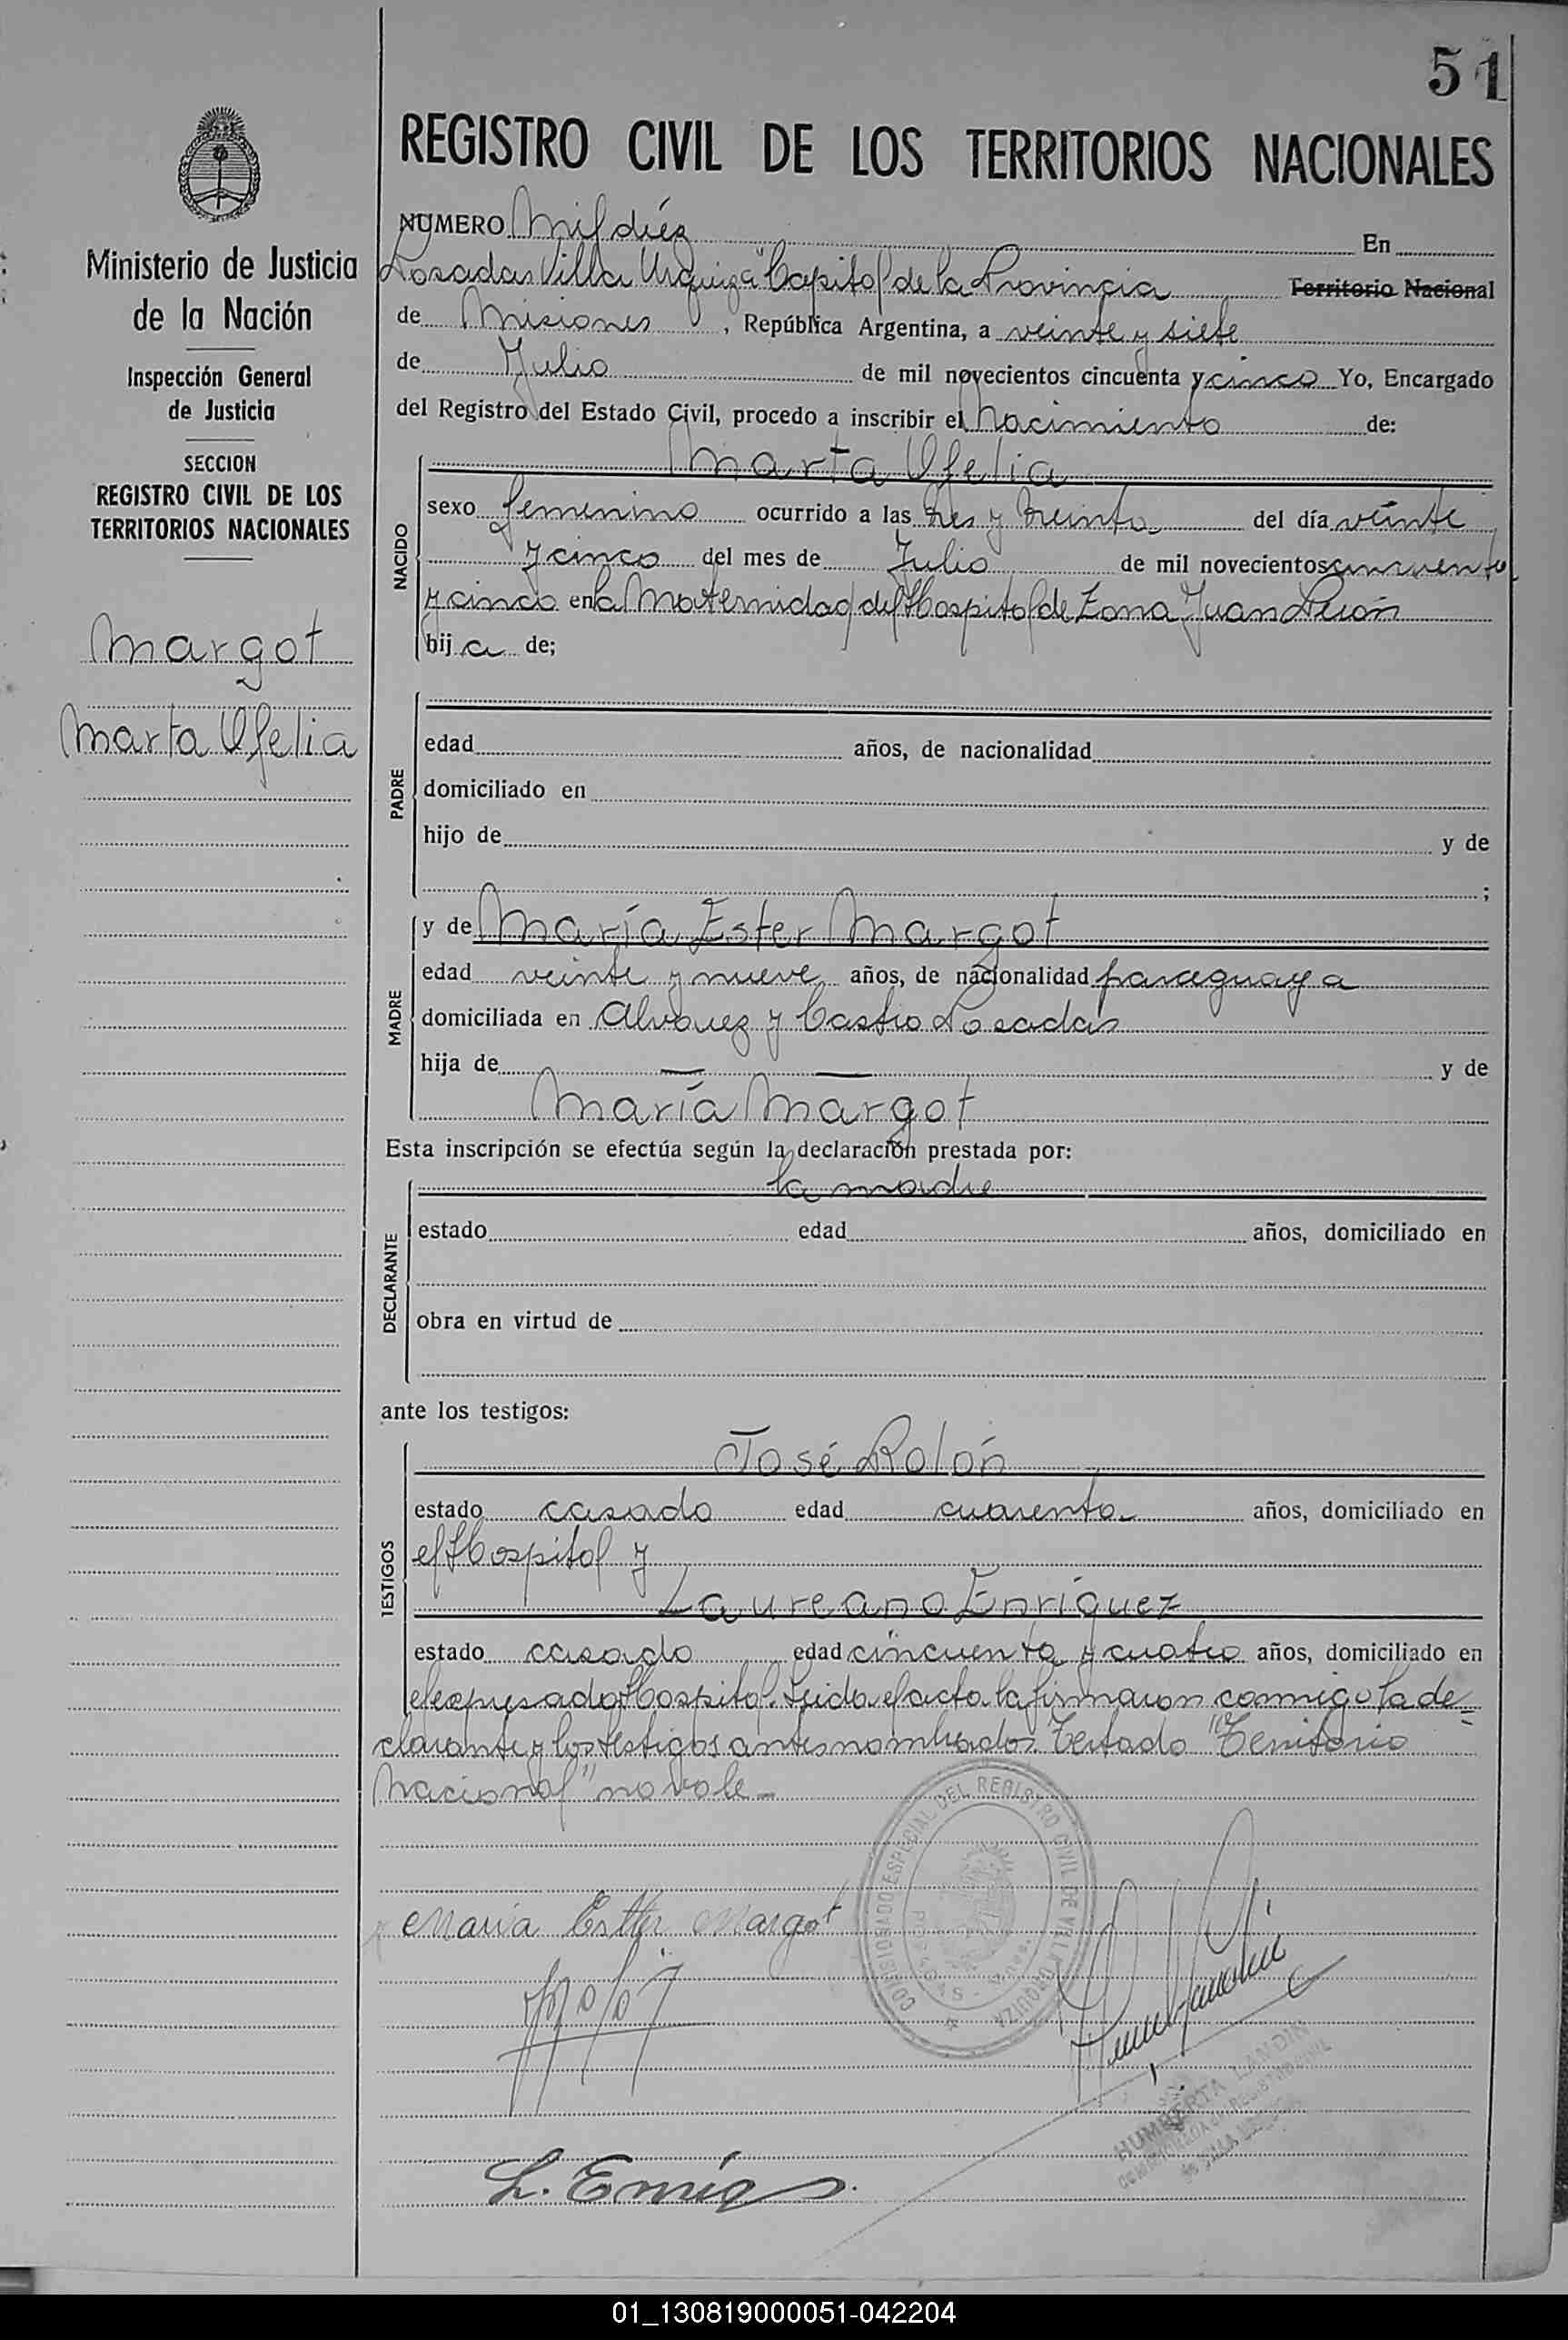 51
REGISTRO CIVIL DE LOS TERRITORIOS NACIONALES
Ministerio de Justicia
de la Nación
Inspección General
de Justicia
SECCION
REGISTRO CIVIL DE LOS
TERRITORIOS NACIONALES
Margot
Marta Ofelia
NUMERO Mil diéz En
Posadas Villa Urquiza "Capital de la Provincia Territorio Nacional
de Misiones, República Argentina, a veinte y siete
de Julio de mil novecientos cincuenta y cinco Yo, Encargado
del Registro del Estado Civil, procedo a inscribir el Nacimiento de:
NACIDO
Marta Ofelia
sexo femenino ocurrido a las tres y treinta del día veinte
y cinco del mes de Julio de mil novecientos cincuenta
y cinco en la Maternidad del Hospital de Zona Juan Perón
hija de;
PADRE
edad años, de nacionalidad
domiciliado en
hijo de y de
;
MADRE
y de María Ester Margot
edad veinte y nueve años, de nacionalidad paraguaya
domiciliada en Alvarez y Castro Posadas
hija de — — y de
María Margot
Esta inscripción se efectúa según la declaración prestada por:
DECLARANTE
la madre
estado edad años, domiciliado en
obra en virtud de
ante los testigos:
TESTIGOS
José Rolón
estado casado edad cuarenta años, domiciliado en
el Hospital y
Laureano Enriquez
estado casado edad cincuenta y cuatro años, domiciliado en
el expresado Hospital. Leida el acta la firmaron conmigo la de=
clarante y los testigos antes nombrados. Testado "Territorio
Nacional" no vale -
COMISIONADO ESPECIAL DEL REGISTRO CIVIL DE VILLA URQUIZA
POSADAS - Mnes.
María Esther Margot
HUMBERTA LANDIN
L. Enriq
01_130819000051-042204